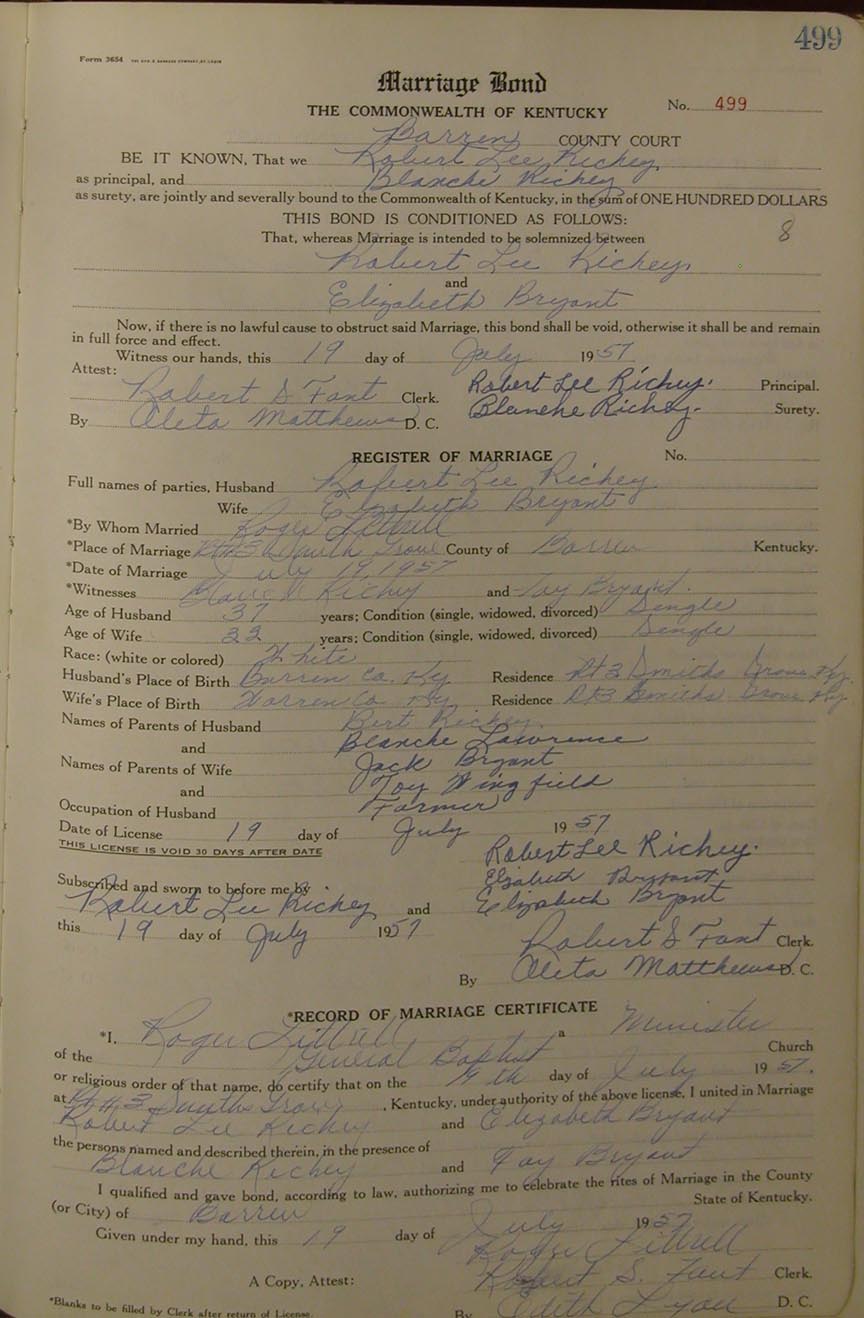 499
Form 3654
Marriage Bond
THE COMMONWEALTH OF KENTUCKY No. 499
Barren COUNTY COURT
BE IT KNOWN, That we Robert Lee Richey
as principal, and Blanche Richey
as surety, are jointly and severally bound to the Commonwealth of Kentucky, in the sum of ONE HUNDRED DOLLARS
THIS BOND IS CONDITIONED AS FOLLOWS:
That, whereas Marriage is intended to be solemnized between 8
Robert Lee Richey
and
Elizabeth Bryant
Now, if there is no lawful cause to obstruct said Marriage, this bond shall be void, otherwise it shall be and remain
in full force and effect.
Witness our hands, this 19 day of July 1957
Attest: Robert Lee Richey. Principal.
Robert S Fant Clerk.
Blanche Richey. Surety.
By Oleta Matthews D. C.
REGISTER OF MARRIAGE No.
Full names of parties, Husband Robert Lee Richey
Wife Elizabeth Bryant
*By Whom Married Roger Littrell
*Place of Marriage Rt #3 Smith Grove County of Barren Kentucky.
*Date of Marriage July 19, 1957
*Witnesses Blanche Richey and Toy Bryant.
Age of Husband 37 years; Condition (single, widowed, divorced) Single
Age of Wife 22 years; Condition (single, widowed, divorced) Single
Race: (white or colored) White
Husband's Place of Birth Barren Co. Ky Residence Rt 3 Smiths Grove Ky.
Wife's Place of Birth Warren Co. Ky Residence Rt 3 Smiths Grove Ky
Names of Parents of Husband Bert Richey
and Blanche Lawrence
Names of Parents of Wife Jack Bryant
and Toy Wingfield
Occupation of Husband Farmer
Date of License 19 day of July 1957
THIS LICENSE IS VOID 30 DAYS AFTER DATE
Robert Lee Richey.
Elizabeth Bryant
Subscribed and sworn to before me by
Elizabeth Bryant
Robert Lee Richey and
this 19 day of July 1957
Robert S Fant Clerk.
By Oleta Matthews D. C.
*RECORD OF MARRIAGE CERTIFICATE
*I, Roger Littrell a Minister
of the General Baptist Church
or religious order of that name, do certify that on the 19th day of July 1957.
at Rt #3 Smiths Grove, Kentucky, under authority of the above license, I united in Marriage
Robert Lee Richey and Elizabeth Bryant
the persons named and described therein, in the presence of
Blanche Richey and Toy Bryant
I qualified and gave bond, according to law, authorizing me to celebrate the rites of Marriage in the County
(or City) of Barren State of Kentucky.
Given under my hand, this 19 day of July 1957
Roger Littrell
A Copy, Attest: Robert S. Fant Clerk.
*Blanks to be filled by Clerk after return of License.
By Edith Lyon D. C.